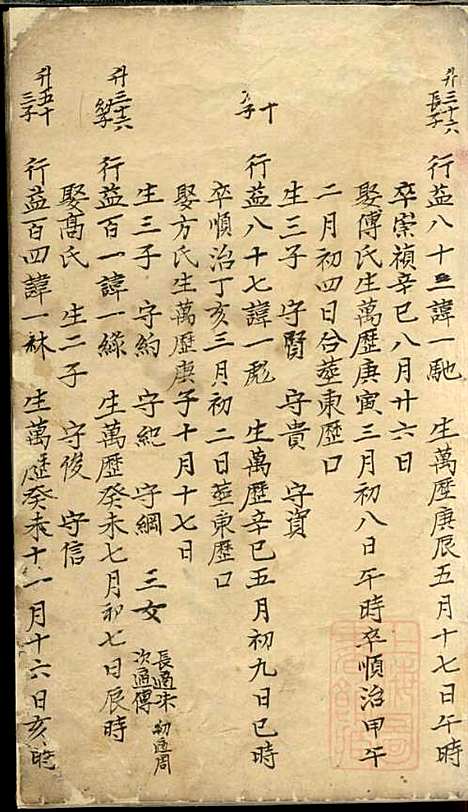 升三十六
長子
行益八十三諱一馳 生萬歷庚辰五月十七日午時
卒崇禎辛巳八月廿六日
娶傅氏生萬歷庚寅三月初八日午時卒順治甲午
二月初四日合塟東歷口
生三子 守賢 守貴 守資
十
子
行益八十七諱一彪 生萬歷辛巳五月初九日巳時
卒順治丁亥三月初二日塟東歷口
娶方氏生萬歷庚子十月十七日
生三子 守約 守紀 守綱 三女 長適 次適傅 幼適周
升三十六
子
行益百一諱一綠 生萬歷癸未七月初七日辰時
娶高氏 生二子 守俊 守信
升五十
三子
行益百四諱一 生萬歷癸未十一月十六日亥時